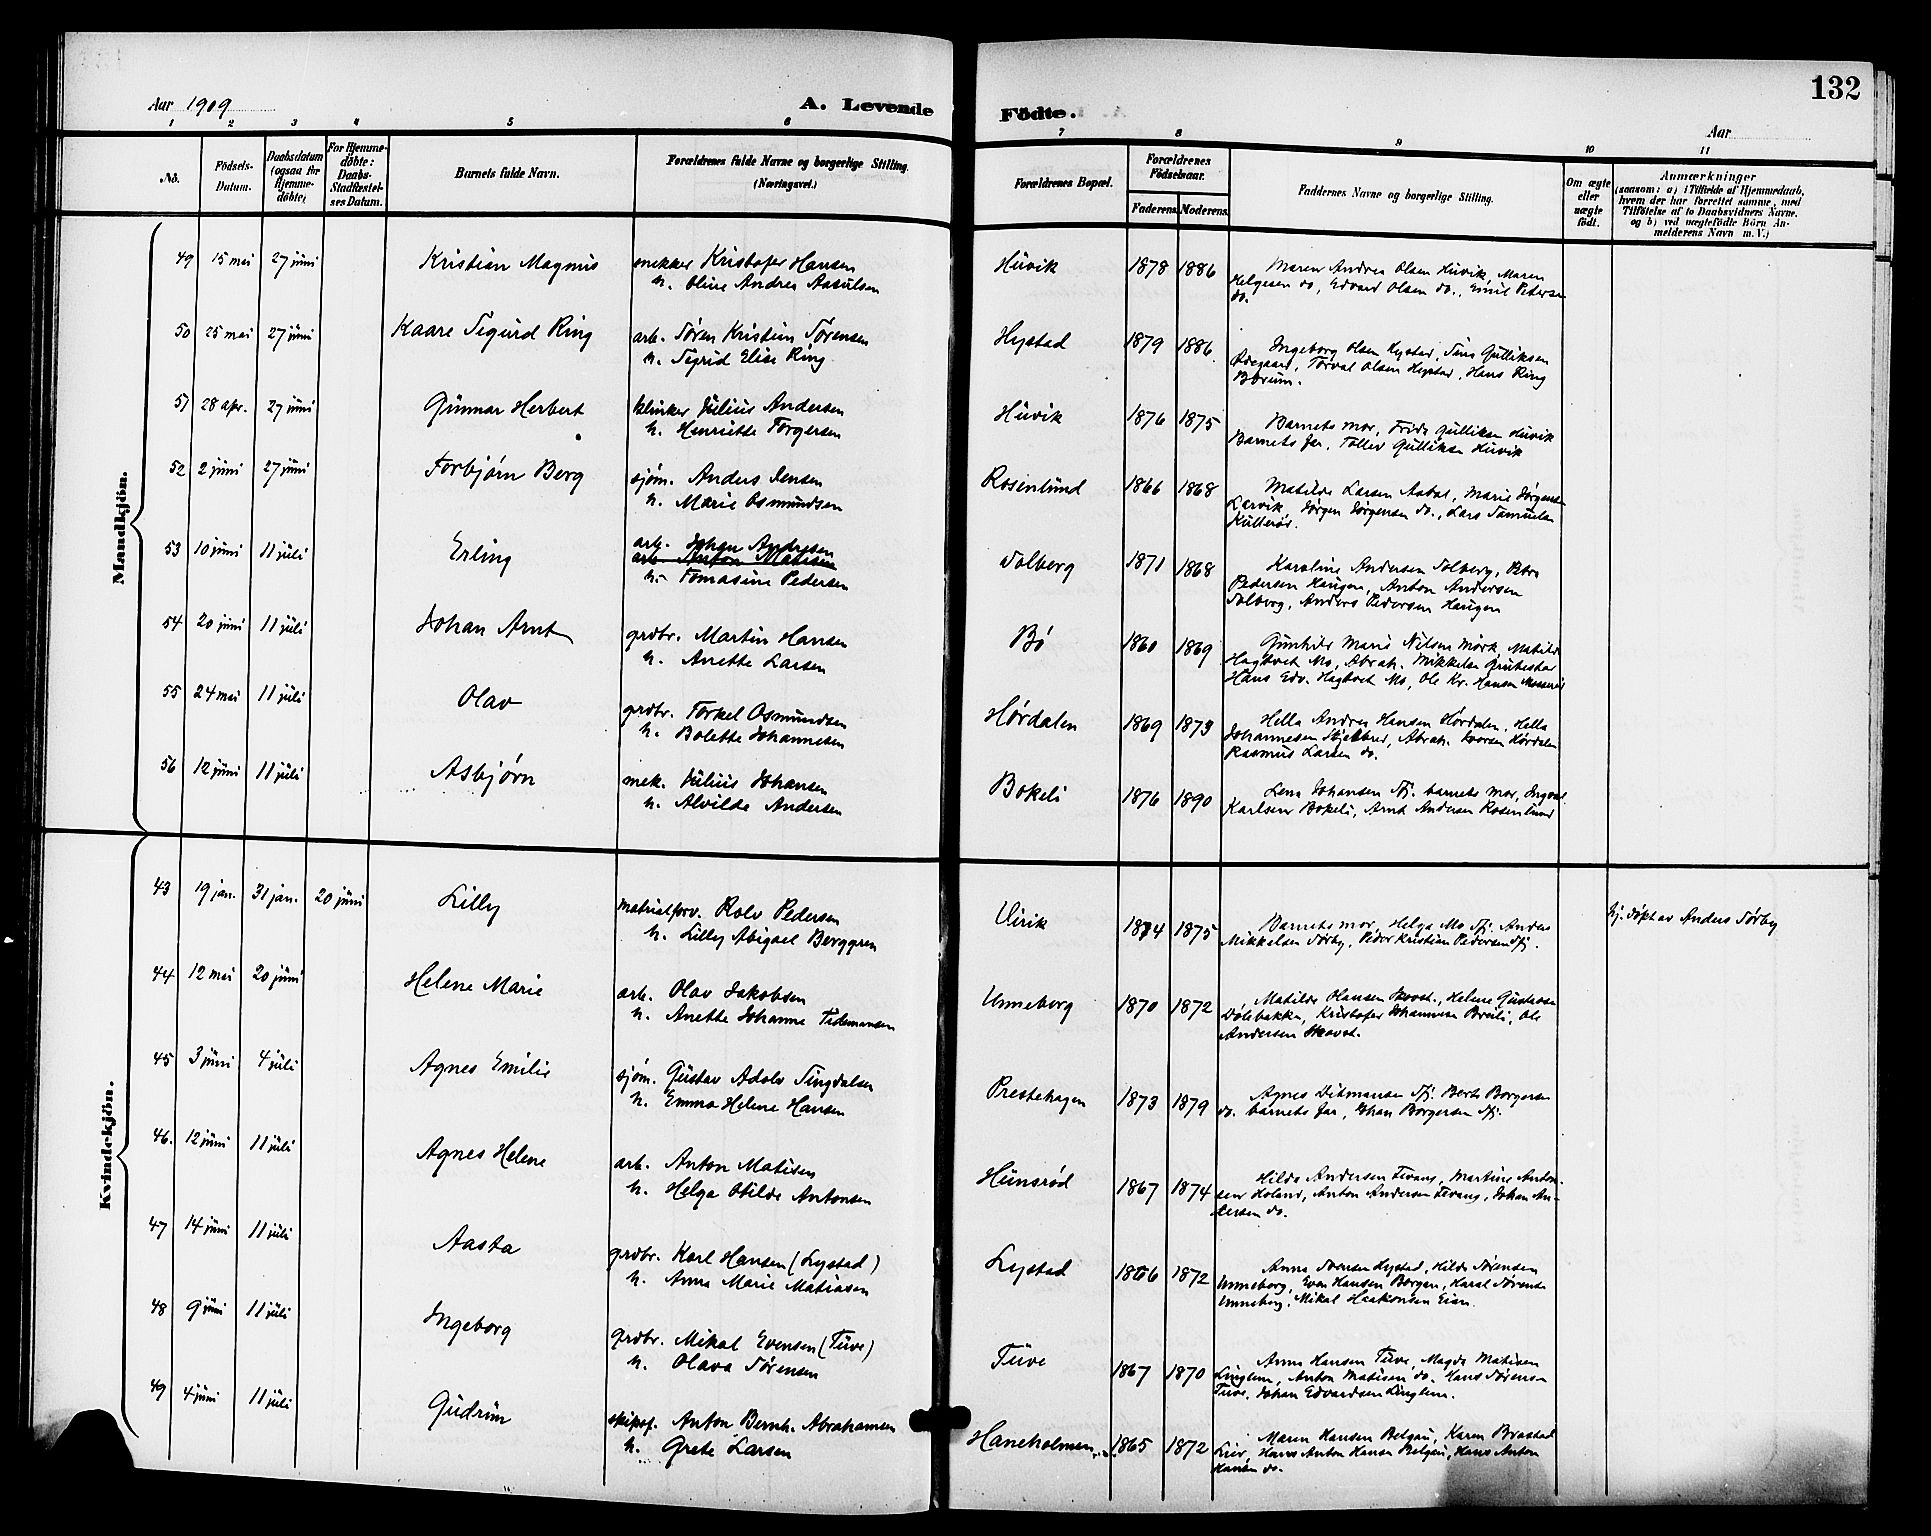 132
Aar 1909
A. Levende Födte.
Aar
1 2 3 4 5 6 7 8 9 10 11
No.
Födsels-Datum.
Daabsdatum (ogsaa for Hjemme-döbte)
For Hjemme-döbte: Daabs-Stadfæstel-ses Datum.
Barnets fulde Navn.
Forældrenes fulde Navne og borgerlige Stilling. (Næringsvei.)
Forældrenes Bopæl.
Forældrenes Födselsaar.
Faderens. Moderens.
Faddernes Navne og borgerlige Stilling.
Om ægte eller uægte födt.
Anmærkninger
(saasom: a) i Tilfælde af Hjemmedaab,
hvem der har forrettet samme, med
Tilföielse af to Daabsvidners Navne.
og b) ved uægtefödte Börn An-
melderens Navn m. V.)
Mandkjön.
49 15 mai 27 juni Kristian Magnus mekker Kristofer Hansen
h. Oline Andrea Aasulsen
Huvik 1878 1886 Maren Andrea Olsen Huvik, Maren
Helgesen do, Edvard Olsen do., Emil Petersen
do.
50 25 mai 27 juni Kaare Sigurd Ring arb. Søren Kristian Sørensen
h. Sigrid Elise Ring
Hystad 1879 1886 Ingeborg Olsen Hystad, Sina Gulliksen
Torval Olsen Hystad, Hans Ring
51 28 apr. 27 juni Gunnar Herbert klinker Julius Andersen
h. Henriette Torgersen
Huvik 1876 1875 Barnets mor, Frida Gulliksen Huvik
Barnets far, Tollev Gulliksen Huvik
52 2 juni 27 juni Torbjørn Berg sjøm. Anders Jensen
h. Marie Osmundsen
Rosenlund 1866 1868 Matilde Larsen Aabol, Marie Jørgensen
Larvik, Jørgen Jørgensen do., Lars Samuelsen
53 10 juni 11 juli Erling arb. Johan Andresen
arb. Anton Matisen
h. Tomasine Pedersen
Solberg 1871 1868 Karoline Andersen Solberg, Petra
Pedersen Haugen, Anton Andersen
Solberg, Anders Pedersen Haugen
54 20 juni 11 juli Johan Arnt grdbr. Martin Hansen
h. Anette Larsen
Bø 1860 1869 Gunhilde Marie Nilsen Mørk, Matilde
Hagtvet Mo, Abrah. Mikkelsen
Hans Edv. Hagtvet Mo, Ole Kr. Hansen
55 24 mai 11 juli Olav grdbr. Torkel Osmundsen
h. Bolette Johannesen
Hørdalen 1869 1873 Hella Andrea Hansen Hørdalen, Hella
Johannesen Skjelbred, Abrah. Iversen Hørdalen
Rasmus Larsen do.
56 12 juni 11 juli Asbjørn mek. Julius Johansen
h. Alvilde Andersen
Bokeli 1876 1890 Lena Johansen Sfj. barnets mor, Ingval
Karlsen Bokeli, Arnt Andersen Rosenlund
Kvindekjön.
43 19 jan. 31 jan. 20 juni Lilly matrialforv. Rolv Pedersen
h. Lilly Abigael Berggren
Virik 1874 1875 Barnets mor, Helga Mo Sfj. Anders
Mikkelsen Sørby, Peder Kristian Pedersen Sfj.
hj. døpt av Anders Sørby
44 12 mai 20 juni Helene Marie arb. Olav Jakobsen
h. Anette Johanne Tidemansen
Unneberg 1870 1872 Matilde Olausen Skovst., Helene Gustavsen
Dølebakka, Kristofer Johannesen Breili, Ole
Andersen Skavst.
45 3 juni 4 juli Agnes Emilie sjøm. Gustav Adolv Tingdalsen
h. Emma Helene Hansen
Prestehagen 1873 1879 Agnes Ditmansen Sfj. Berta Borgersen
do. barnets far, Johan Borgersen Sfj.
46. 12 juni 11 juli Agnes Helene arb. Anton Matisen
h. Helga Otilde Antonsen
Hunsrød 1867 1874 Hilda Andersen Fevang, Martine Anton-
sen Holand, Anton Andersen Fevang, Johan An-
dersen do.
47 14 juni 11 juli Aasta grdbr. Karl Hansen (Lystad)
h. Anna Marie Matiasen
Lystad 1866 1872 Anna Iversen Lystad, Hilda Sørensen
Unneberg, Even Hansen Borgen, Haral Sørensen
Unneberg, Mikal Haakonsen Eian.
48 9 juni 11 juli Ingeborg grdbr. Mikal Evensen (Tuve)
h. Olava Sørensen
Tuve 1867 1870 Anna Hansen Tuve, Magda Matisen
Linglem, Anton Matisen do. Hans Sørensen
Tuve, Johan Edvardsen Linglem.
49 4 juni 11 juli Gudrun skipsf. Anton Bernh. Abrahamsen
h. Grete Larsen
Haneholmen 1865 1872 Maren Hansen Belgau, Karen Brastad
Lier, Hans Anton Hansen Belgau, Hans Anton
Hansen do.